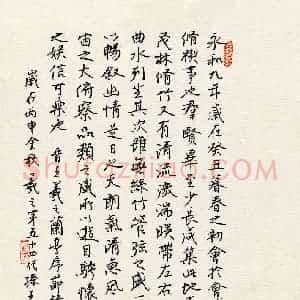 永和九年歲在癸丑暮春之初會於會
脩稧事也群賢畢至少長咸集此地
茂林脩竹又有清流激湍暎帶左右
曲水列坐其次雖無絲竹管弦之盛一
以暢敘幽情是日也天朗氣清惠風
宙之大俯察品類之盛所以遊目騁懷
之娛信可樂也 晉羲之蘭亭序節
歲在丙申金秋羲之第五十四代孫王